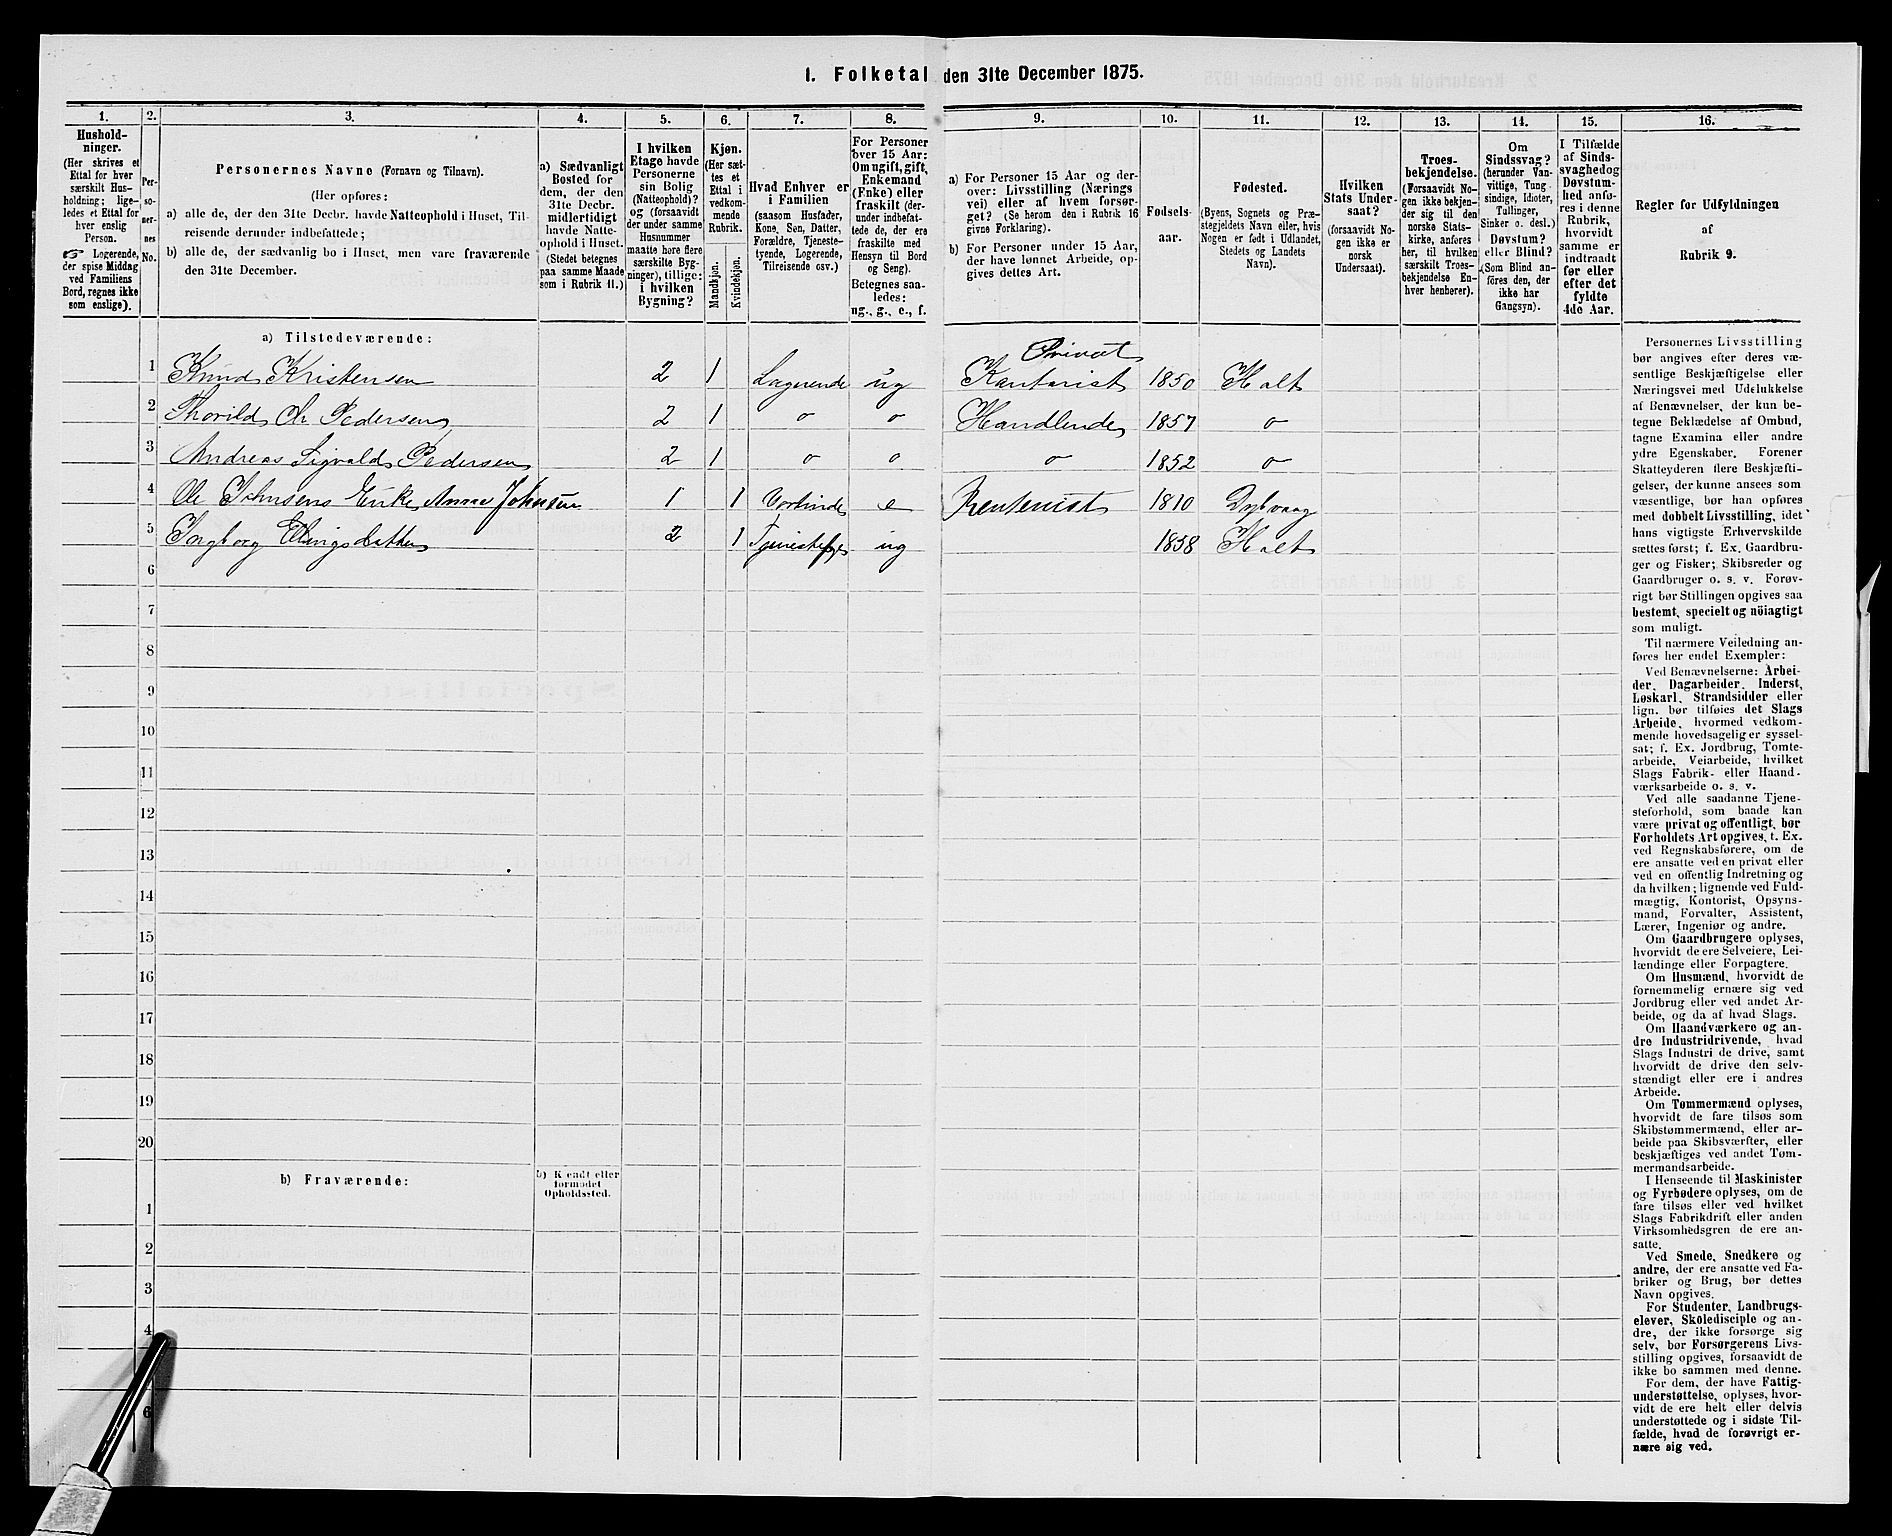 1. Folketal den 31te December 1875.
1. 2. 3. 4. 5. 6. 7. 8. 9. 10. 11. 12. 13. 14. 15. 16.
Hushold-
ninger.
(Her skrives et
Ettal for hver
særskilt Hus-
holdning; lige-
ledes et Ettal for
hver enslig
Person.
☞ Logerende,
der spise Middag
ved Familiens
Bord, regnes ikke
som enslige).
Per-
so-
ner-
nes
No.
Personernes Navne (Fornavn og Tilnavn).
(Her opføres:
a) alle de, der den 31te Decbr. havde Natteophold i Huset, Til-
reisende derunder indbefattede;
b) alle de, der sædvanlig bo i Huset, men vare fraværende
den 31te December.
a) Sædvanligt
Bosted for
dem, der den
31te Decbr.
midlertidigt
havde Natte-
ophold i Huset.
(Stedet betegnes
paa samme Maade
som i Rubrik 11.)
I hvilken
Etage havde
Personerne
sin Bolig
(Natteophold)?
og (forsaavidt
der under samme
Husnummer
maatte høre flere
særskilte Byg-
ninger), tillige:
i hvilken
Bygning?
Kjøn.
(Her sæt-
tes et
Ettal i
vedkom-
mende
Rubrik.
Mandkjøn.
Kvindekjøn.
Hvad Enhver er
i Familien
(saasom Husfader,
Kone, Søn, Datter,
Forældre, Tjeneste-
tyende, Logerende,
Tilreisende osv.)
For Personer
over 15 Aar:
Om ugift, gift,
Enkemand
(Enke) eller
fraskilt (der-
under indbefat-
tede de, der ere
fraskilte med
Hensyn til Bord
og Seng).
Betegnes saa-
ledes:
ug., g., e., f.
a) For Personer 15 Aar og der-
over: Livsstilling (Nærings
vei) eller af hvem forsør-
get? (Se herom den i Rubrik 16
givne Forklaring).
b) For Personer under 15 Aar,
der have lønnet Arbeide, op-
gives dettes Art.
Fødsels-
aar.
Fødested.
(Byens, Sognets og Præ-
stegjeldets Navn eller, hvis
Nogen er født i Udlandet,
Stedets og Landets
Navn).
Hvilken
Stats Under-
saat?
(forsaavidt No-
gen ikke er
norsk
Undersaat).
Troes-
bekjendelse.
(Forsaavidt No-
gen ikke bekjen-
der sig til den
norske Stats-
kirke, anføres
her, til hvilken
særskilt Troes-
bekjendelse En-
hver henhører).
Om
Sindssvag?
(herunder Van-
vittige, Tung
sindige, Idioter,
Tullinger,
Sinker o. desl.)
Døvstum?
eller Blind?
(Som Blind an-
føres den, der
ikke har
Gangsyn).
I Tilfælde
af Sinds-
svaghed og
Døvstum-
hed anfø-
res i denne
Rubrik,
hvorvidt
samme er
indtraadt
før eller
efter det
fyldte
4de Aar.
Regler for Udfyldningen
af
Rubrik 9.
a) Tilstedeværende:
Privat
1 Knud Kristensen 2 1 Logerende ug Kontorist 1850 Holt
2 Thorvild Chr Pedersen 2 1 o o Handlende 1857 o
3 Andreas Sigvald Pedersen 2 1 o o o 1852 o
4 Ole Johnsens Enke Anne Johnsen 1 1 Værtinde e Rentenist 1810 Dybvaag
5 Ingborg Ellingsdatter 2 1 Tjenestepge ug 1858 Holt
6
7
8
9
10
11
12
13
14
15
16
17
18
19
20
b) Fraværende:
b) Kjendt eller
formodet
Opholdssted.
1
2
3
4
6
Personernes Livsstilling
bør angives efter deres væ-
sentlige Beskjæftigelse eller
Næringsvei med Udelukkelse
af Benævnelser, der kun be-
tegne Beklædelse af Ombud,
tagne Examina eller andre
ydre Egenskaber. Forener
Skatteyderen flere Beskjæfti-
gelser, der kunne ansees som
væsentlige, bør han opføres
med dobbelt Livsstilling, idet
hans vigtigste Erhvervskilde
sættes først; f. Ex. Gaardbru-
ger og Fisker; Skibsreder og
Gaardbruger o. s. v. Forøv-
rigt bør Stillingen opgives saa
bestemt, specielt og nöiagtigt
som muligt.
Til nærmere Veiledning an-
føres her endel Exempler:
Ved Benævnelserne: Arbei-
der, Dagarbeider, Inderst,
Løskarl, Strandsidder eller
lign. bør tilføies det Slags
Arbeide, hvormed vedkom-
mende hovedsagelig er syssel-
sat; f. Ex. Jordbrug, Tomte-
arbeide, Veiarbeide, hvilket
Slags Fabrik- eller Haand-
værksarbeide o. s. v.
Ved alle saadanne Tjene-
steforhold, som baade kan
være privat og offentligt, bør
Forholdets Art opgives, t. Ex.
ved Regnskabsførere, om de
ere ansatte ved en privat eller
ved en offentlig Indretning og
da hvilken; lignende ved Fuld-
mægtig, Kontorist, Opsyns-
mand, Forvalter, Assistent,
Lærer, Ingeniør og andre.
Om Gaardbrugere oplyses,
hvorvidt de ere Selveiere, Lei-
lændinge eller Forpagtere.
Om Husmænd, hvorvidt de
fornemmelig ernære sig ved
Jordbrug eller ved andet Ar-
beide, og da af hvad Slags.
Om Haandværkere og an-
dre Industridrivende, hvad
Slags Industri de drive, samt
hvorvidt de drive den selv-
stændigt eller ere i andres
Arbeide.
Om Tømmermænd oplyses,
hvorvidt de fare tilsøs som
Skibstømmermænd, eller ar-
beide paa Skibsværfter, eller
beskjæftiges ved andet Tøm-
mermandsarbeide.
I Henseende til Maskinister
og Fyrbødere oplyses, om de
fare tilsøs eller ved hvilket
Slags Fabrikdrift eller anden
Virksomhedsgren de ere an-
satte.
Ved Smede, Snedkere og
andre, der ere ansatte ved Fa-
briker og Brug, bør dettes
Navn opgives.
For Studenter, Landbrugs-
elever, Skoledisciple og an-
dre, der ikke forsørge sig
selv, bør Forsørgerens Livs-
stilling opgives, forsaavidt de
ikke bo sammen med denne.
For dem, der have Fattig-
understøttelse, oplyses, hvor-
vidt de ere helt eller delvis
understøttede og i sidste Til-
fælde, hvad de forøvrigt er-
nære sig ved.